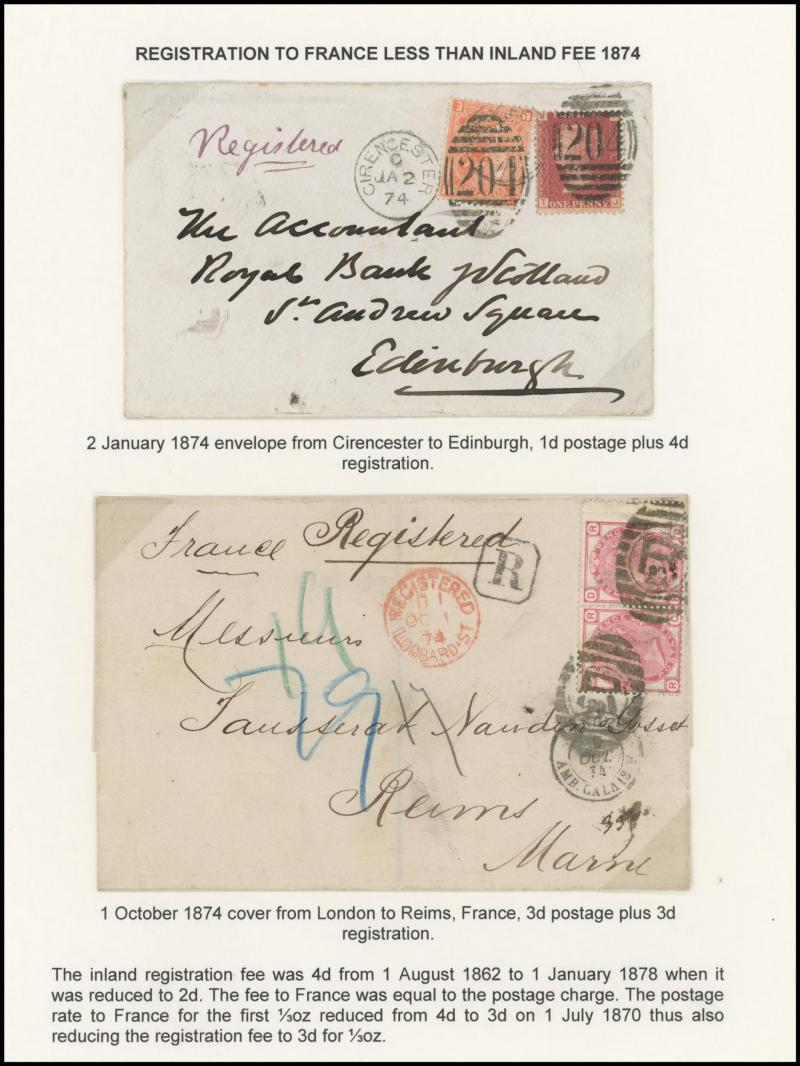 REGISTRATION TO FRANCE LESS THAN INLAND FEE 1874
Registered
CIRENCESTER
C
JA 2
74
204
204
T ONE PENNY J
The Accountant
Royal Bank of Scotland
St. Andrew Square
Edinburgh
2 January 1874 envelope from Cirencester to Edinburgh, 1d postage plus 4d
registration.
France Registered
R
REGISTERED
D 1
OC 1
74
LOMBARD·ST
Messieurs
79
17
Tausserat Naudin Gosset
OCT.
74
AMB. CALAIS
Reims
Marne
1 October 1874 cover from London to Reims, France, 3d postage plus 3d
registration.
The inland registration fee was 4d from 1 August 1862 to 1 January 1878 when it
was reduced to 2d. The fee to France was equal to the postage charge. The postage
rate to France for the first ⅓oz reduced from 4d to 3d on 1 July 1870 thus also
reducing the registration fee to 3d for ⅓oz.